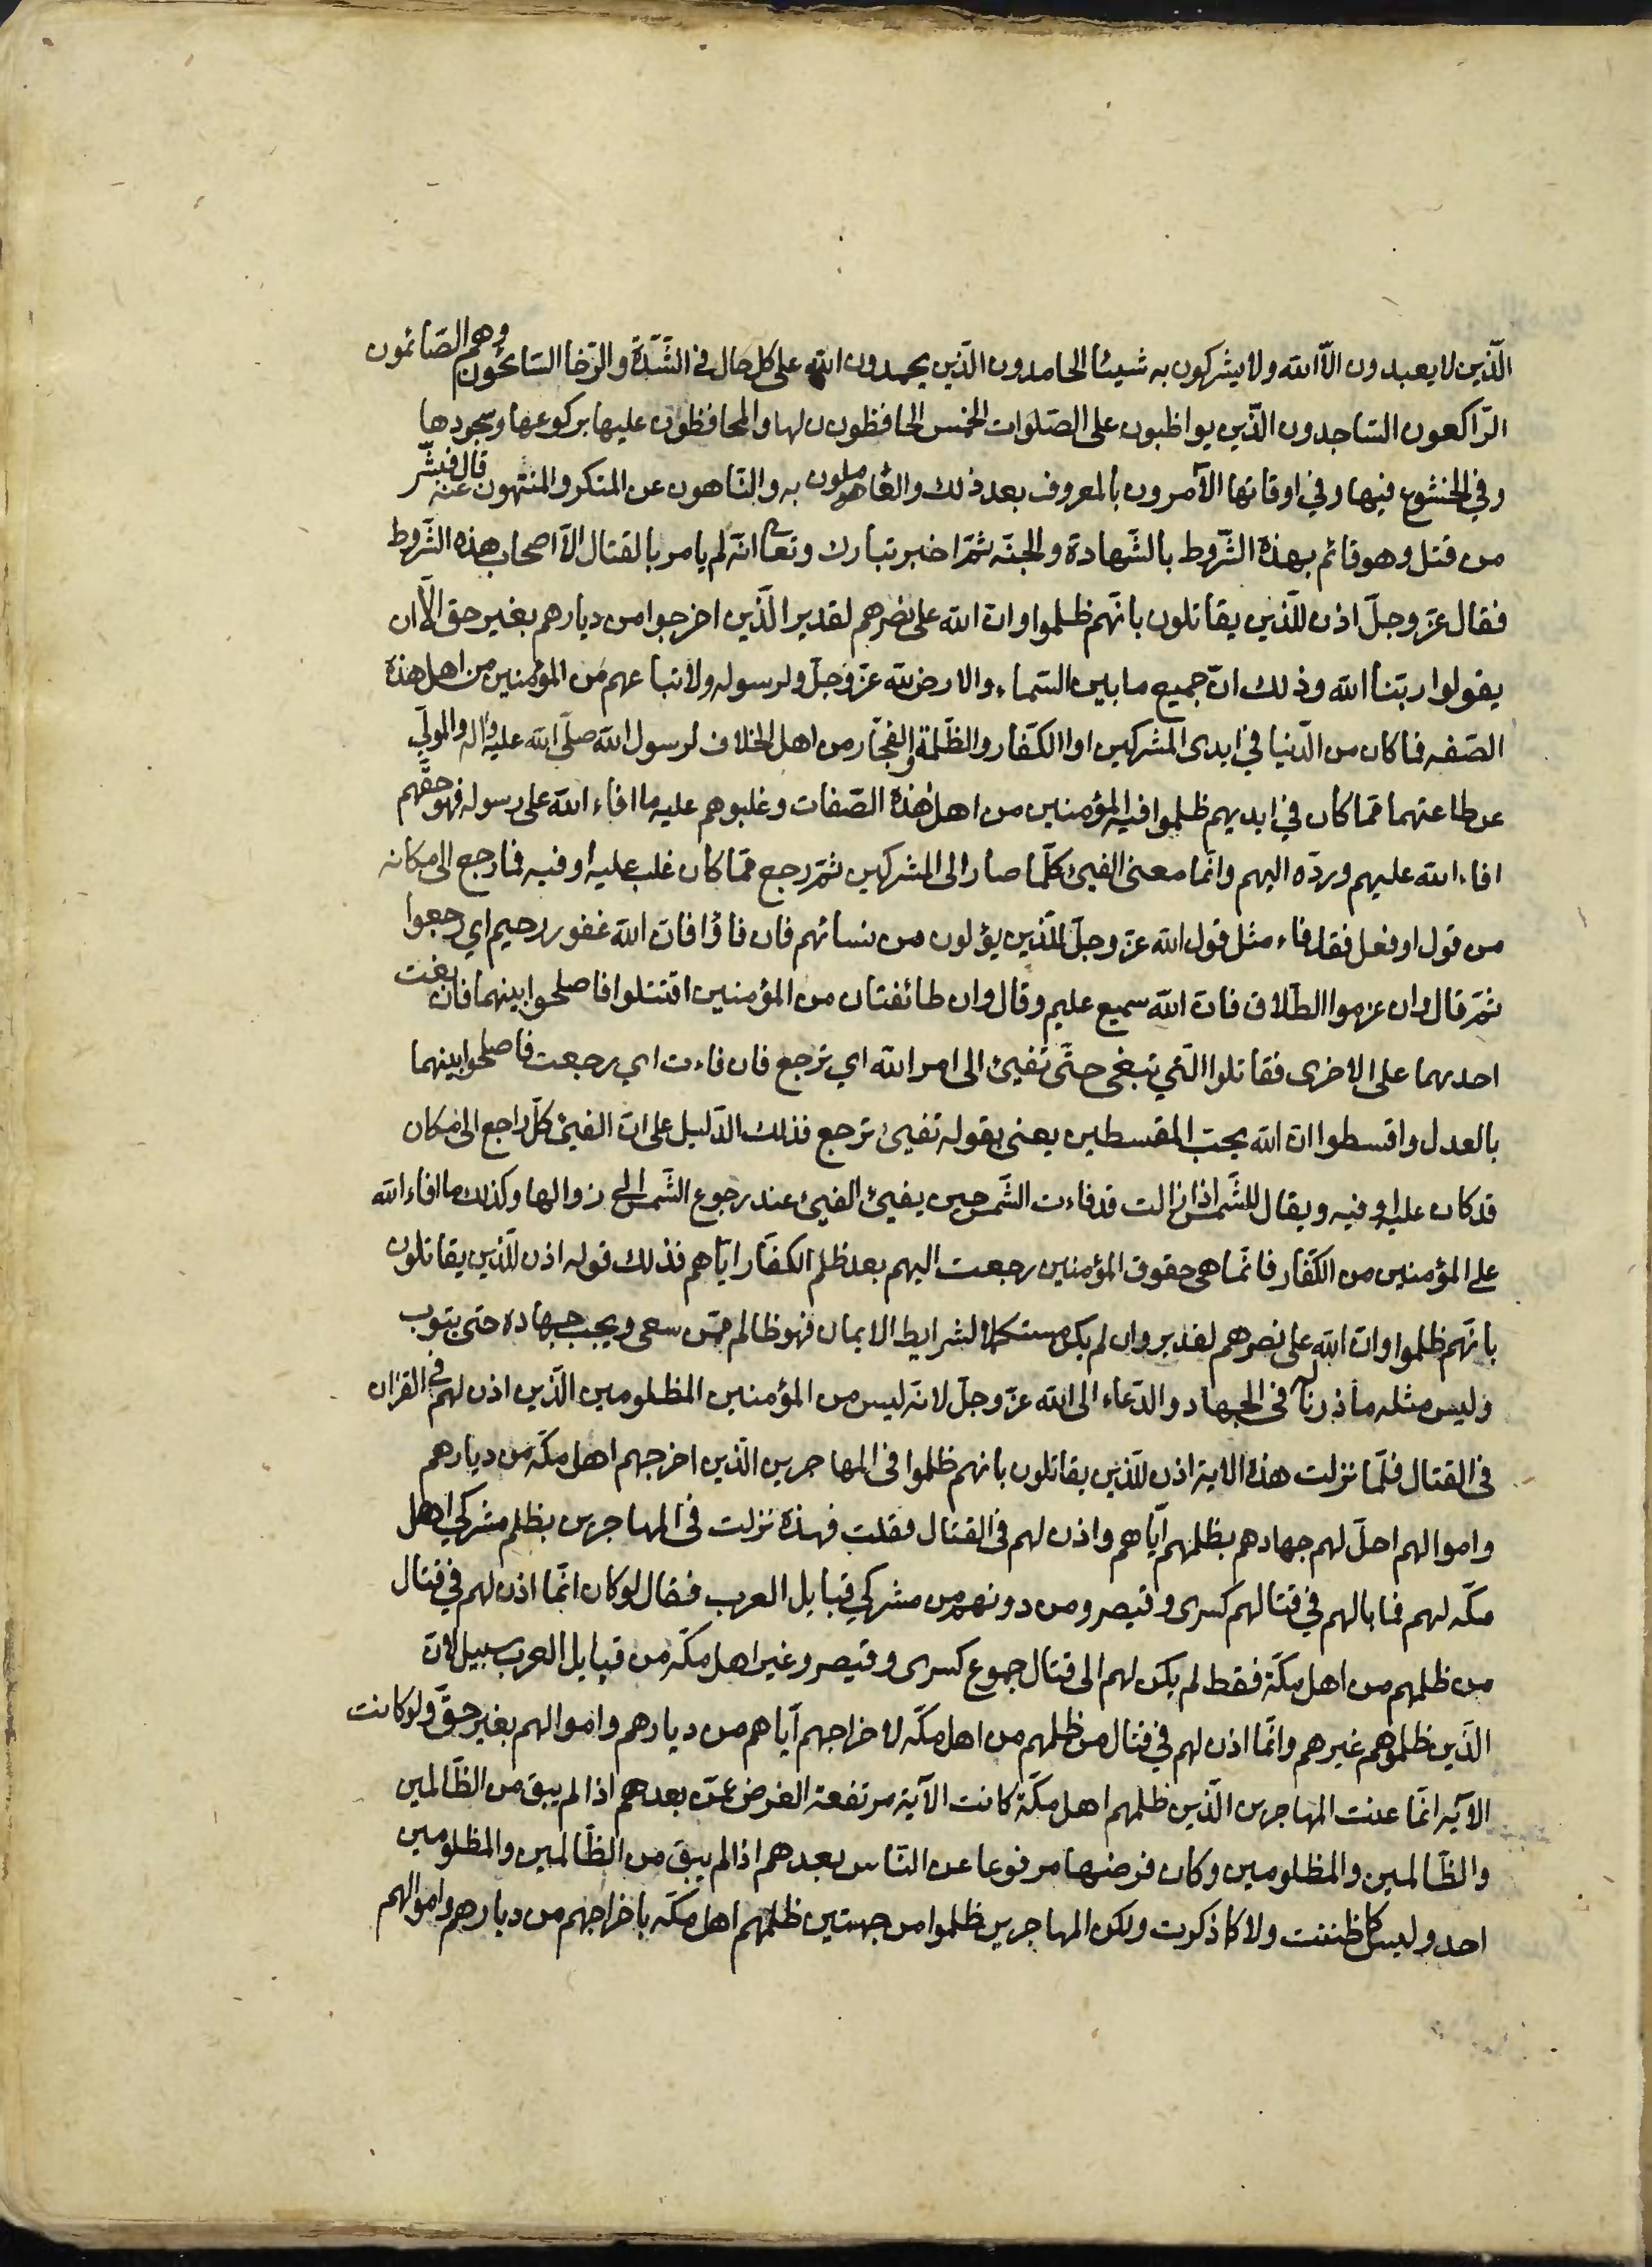 الّذين لا يعبدون الّا الله ولا يشركون به شيئا الحامدون الّذين يحمدون الله على كل حال في الشّدّة والرّخا السّائحون وهم الصّائمون
الرّاكعون السّاجدون الّذين يواظبون على الصّلوات الخمس الحافظون لها والمحافظون عليها بركوعها وسجودها
وفي الخشوع فيها وفي اوقاتها الآمرون بالمعروف بعد ذلك والعاملون به والنّاهون عن المنكر والمنتهون عنه قال فبشّر
من قتل وهو قائم بهذه الشّروط بالشّهادة والجنّه ثمّ اخبر تبارك وتعالى انّه لم يامر بالقتال الّا اصحاب هذه الشّروط
فقال عزّ وجلّ اذن للّذين يقاتلون بانّهم ظلموا وان الله على نصرهم لقدير الّذين اخرجوا من ديارهم بغير حق الّا ان
يقولوا ربّنا الله وذلك انّ جميع ما بين السّماء والارض لله عزّ وجلّ ولرسوله ولاتباعهم من المؤمنين من اهل هذه
الصّفه فما كان من الدّنيا في ايدى المشركين او الكفّار والظّلمة والفجّار من اهل الخلاف لرسول الله صلّى الله عليه واله والمولّي
عن طاعتهما ممّا كان في ايديهم ظلموا فيه المؤمنين من اهل هذه الصّفات وغلبوهم عليه ما افاء الله على رسوله فهو حقّهم
افاء الله عليهم وردّه اليهم وانّما معنى الفيئ كلّما صار الى المشركين ثمّ رجع ممّا كان غلب عليه او فيه فما رجع الى مكانه
من قول او فعل فقد فاء مثل قول الله عزّ وجلّ للّذين يؤلون من نسائهم فان فاؤا فانّ الله غفور رحيم اي رجعوا
ثمّ قال وان عزموا الطّلاق فانّ الله سميع عليم وقال وان طائفتان من المؤمنين اقتتلوا فاصلحوا بينهما فان بغت
احديهما على الاخرى فقاتلوا الّتي تبغى حتّى تفيئ الى امر الله اي ترجع فان فاءت اي رجعت فاصلحوا بينهما
بالعدل واقسطوا ان الله يحبّ المقسطين يعنى بقوله تفيئ ترجع فذلك الدّليل على انّ الفيئ كلّ راجع الى مكان
قد كان عليه او فيه ويقال للشّمس اذا زالت قد فاءت الشّمس حين يفيئ الفيئ عند رجوع الشّمس الى زوالها وكذلك ما افاء الله
على المؤمنين من الكفّار فانّما هى حقوق المؤمنين رجعت اليهم بعد ظلم الكفّار ايّاهم فذلك قوله اذن للّذين يقاتلون
بانّهم ظلموا وانّ الله على نصرهم لقدير وان لم يكن مستكملا لشرايط الايمان فهو ظالم ممّن سعى ويجب جهاده حتى يتوب
وليس مثله ماذونا له فى الجهاد والدّعاء الى الله عزّ وجلّ لانّه ليس من المؤمنين المظلومين الّذين اذن لهم في القران
فى القتال فلمّا نزلت هذه الاية اذن للّذين يقاتلون بانهم ظلموا فى المهاجرين الّذين اخرجهم اهل مكّة من ديارهم
واموالهم احلّ لهم جهادهم بظلمهم ايّاهم واذن لهم فى القتال فقلت فهذه نزلت فى المهاجرين بظلم مشركي اهل
مكّه لهم فما بالهم في قتالهم كسرى وقيصر ومن دونهم من مشركي قبايل العرب فقال لو كان انّما اذن لهم في قتال
من ظلمهم من اهل مكّة فقط لم يكن لهم الى قتال جموع كسرى وقيصر وغير اهل مكّة من قبايل العرب سبيل لانّ
الّذين ظلموهم غيرهم وانّما اذن لهم في قتال من ظلمهم من اهل مكّه لاخراجهم ايّاهم من ديارهم واموالهم بغير حقّ ولو كانت
الآيه انّما عنت المهاجرين الّذين ظلمهم اهل مكّة كانت الآية مرتفعة الفرض عمّن بعدهم اذا لم يبق من الظّالمين
والظّالمين والمظلومين وكان فرضها مرفوعا عن النّاس بعدهم اذا لم يبق من الظّالمين والمظلومين
احد وليس كما ظننت ولا كما ذكرت ولكن المهاجرين ظلموا من جهتين ظلمهم اهل مكّه باخراجهم من ديارهم واموالهم